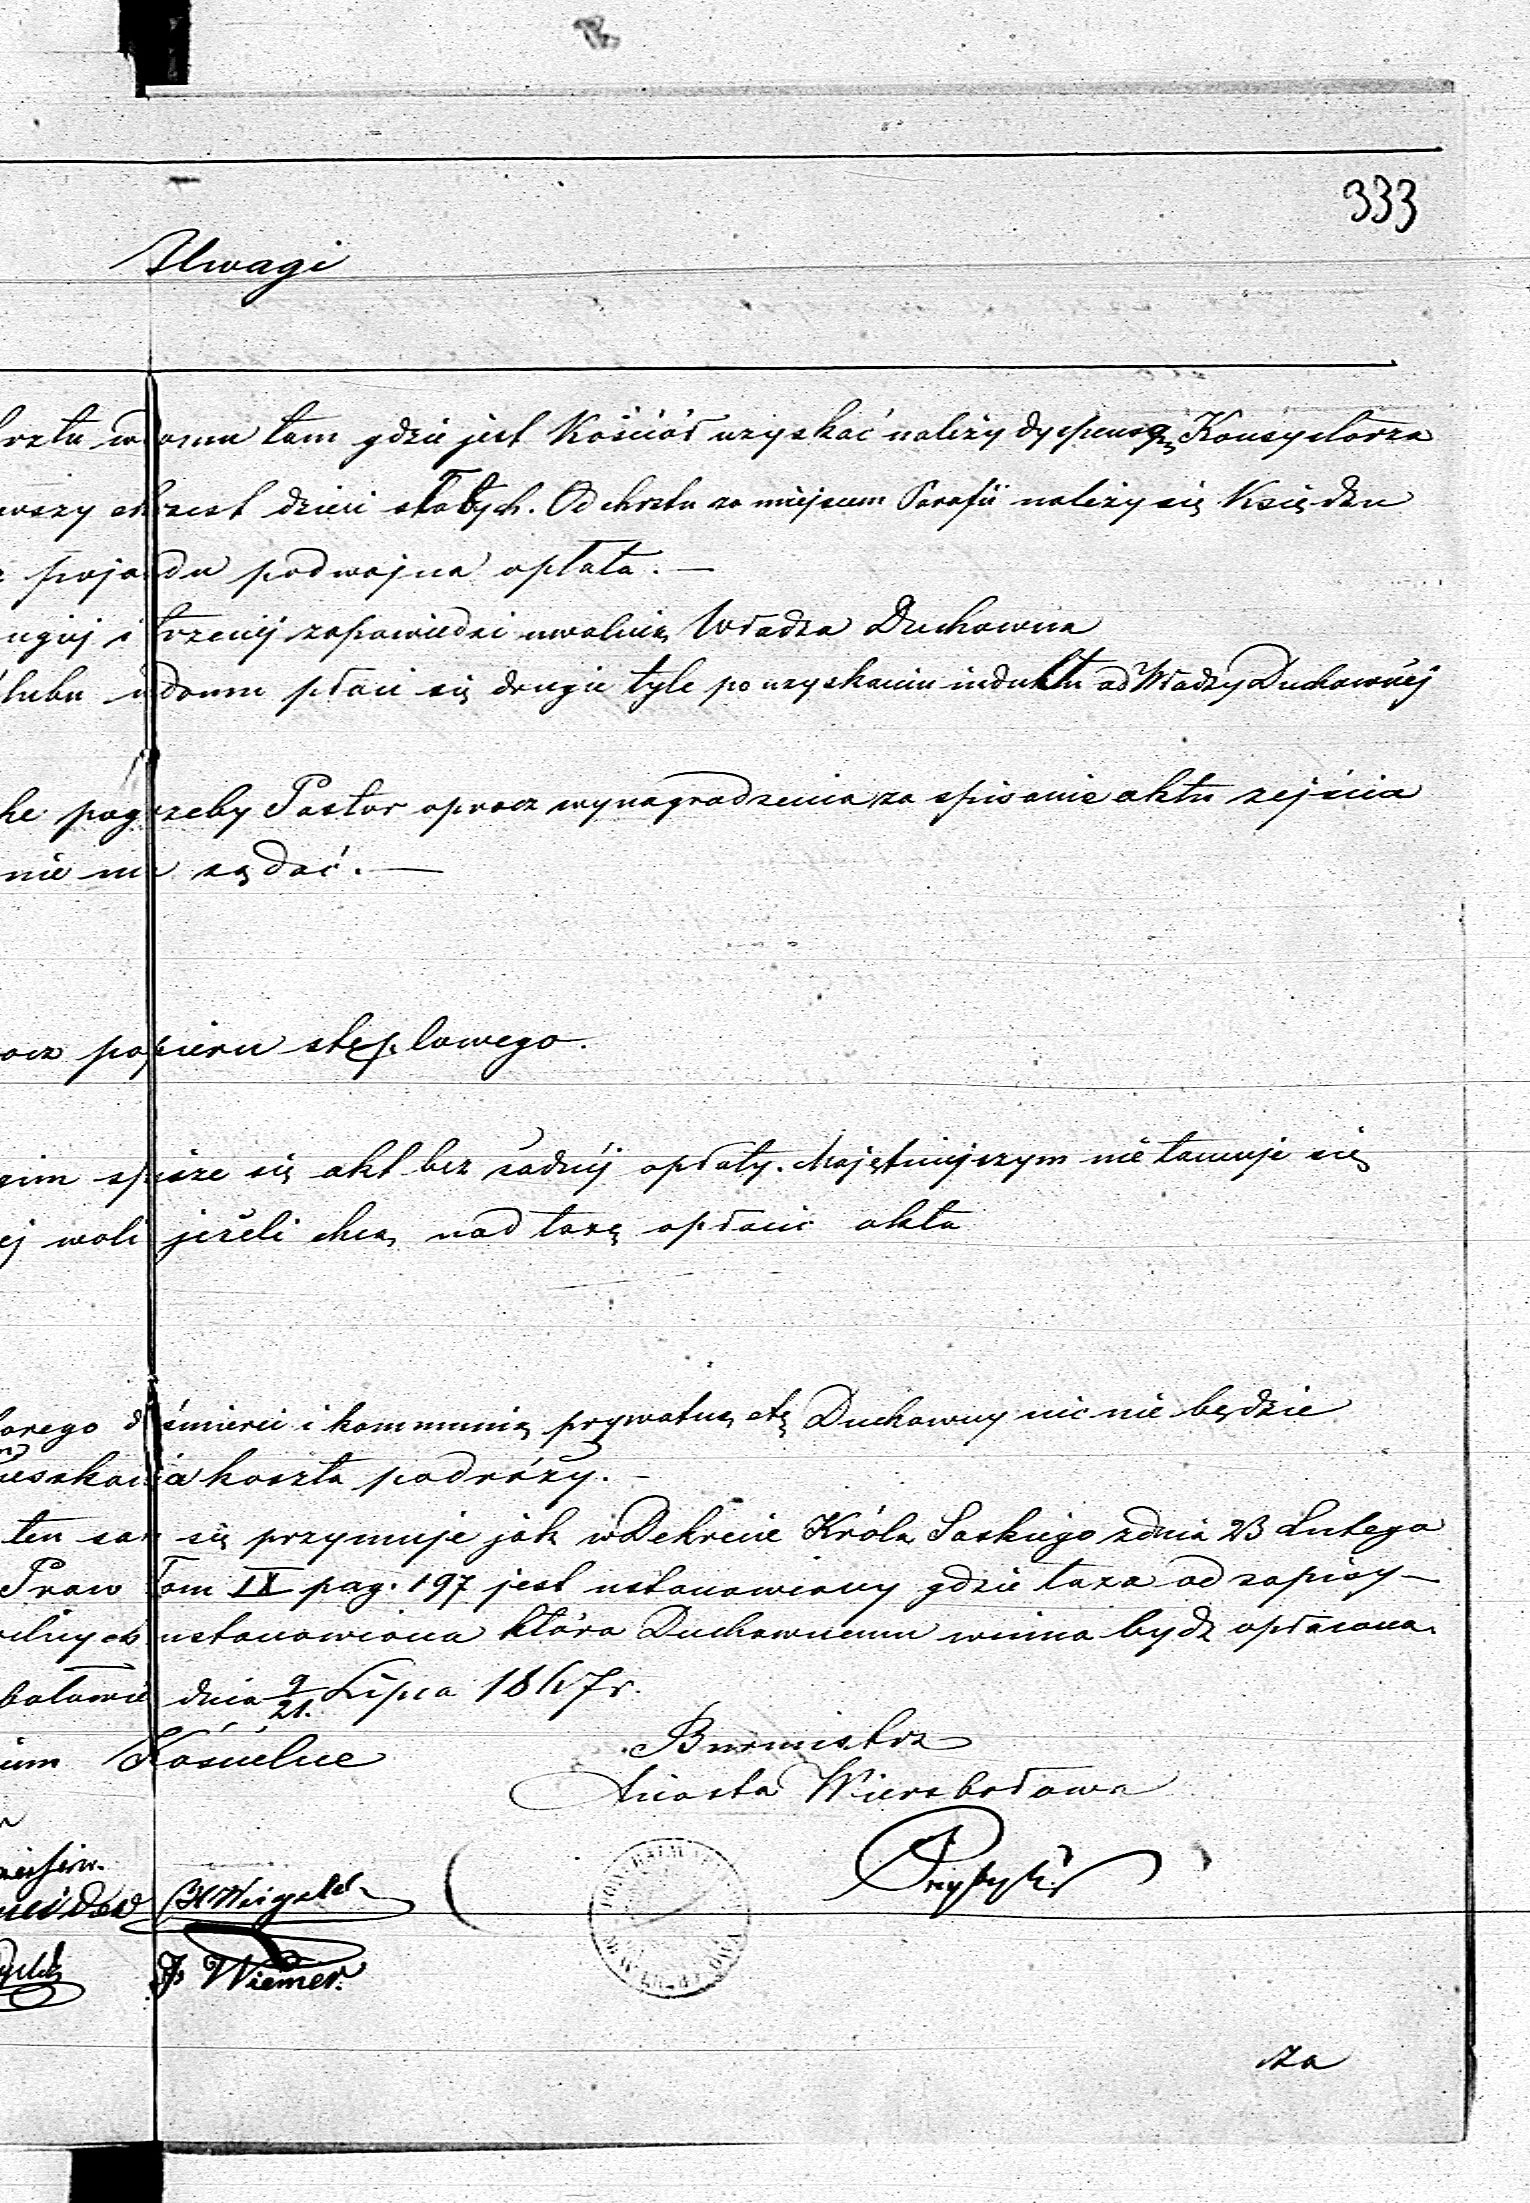 333
Uwagi
domu tam gdzie jest Kościół uzyskać należy dyspensę Konsystorza
chrzest dzieci słabych. Od chrztu za miejscem Parafii należy się Księdzu
pojazdu podwójna opłata. —
i trzeciej zapowiedzi uwalnia Władza Duchowna
w domu płaci się drugie tyle po uzyskaniu indultu od Władzy Duchownej
pogrzeby Pastor oprócz wynagrodzenia za spisanie aktu zejścia
nie ma żądać. —
papieru stęplowego.
spisze się akt bez żadnéj opłaty. Majętniejszym nie tamuje się
woli jeżeli chcą nad taxę opłacić akta
śmierci i kommunią prywatną etc Duchowny nic nie będzie
koszta podróży. —
ten sam się przymuje jak w Dekrecie Króla Saskiego z dnia 23 Lutego
Praw Tom IX pag. 197 jest ustanowiony gdzie taxa od zapisy-
ustanowiona która Duchownemu winna bydź opłacona.
dnia 9/21. Lipca 1847 r.
Kościelne
Burmistrz
Miasta Wierzbołowa
J Wiemer.
za